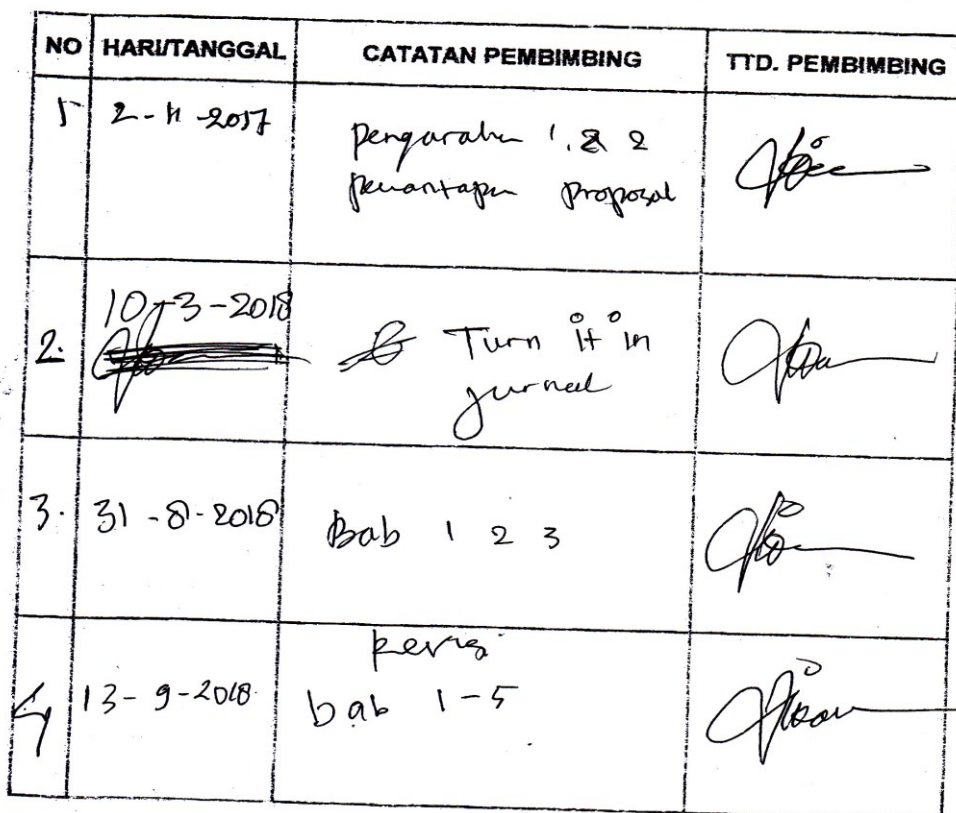 NO HARI/TANGGAL CATATAN PEMBIMBING TTD. PEMBIMBING
1 2-11-2017 pengarahn 1, 2
pemantapn proposal
10-3-2018
2. Turn it in
jurnal
3. 31-8-2018 Bab 1 2 3
Revisi
4 13-9-2018 bab 1-5